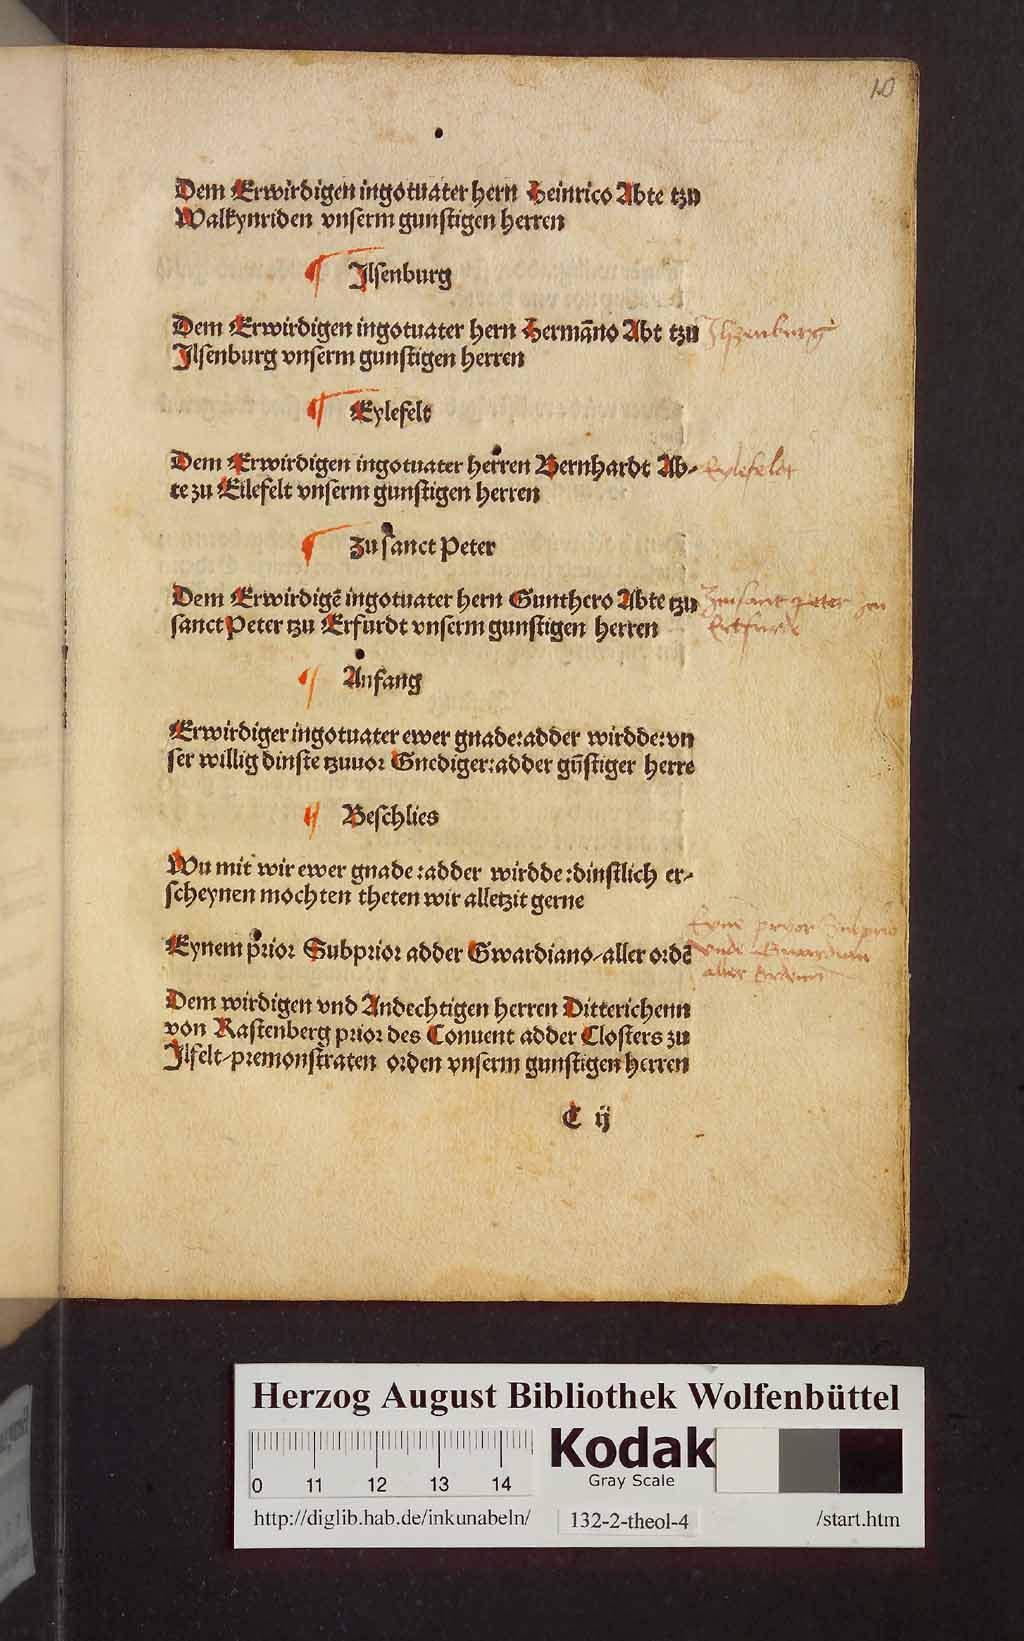 10
Dem Erwirdigen ingotuater hern Heinrico Abte tzu
Walkynriden vnserm gunstigen herren
Jlsenburg
Dem Erwirdigen ingotuater hern Hermāno Abt tzu
Jlsenburg vnserm gunstigen herren
Eylefelt
Dem Erwirdigen ingotuater herren Bernhardt Ab⸗
te zu Eilefelt vnserm gunstigen herren
Eylefeldt
Zu sanct Peter
Dem Erwirdigē ingotuater hern Gunthero Abte tzu
sanct Peter tzu Erfurdt vnserm gunstigen herren
Anfang
Erwirdiger ingotuater ewer gnade:adder wirdde:vn
ser willig dinste tzuuor Gnediger:adder gūstiger herre
Beschlies
Wu mit wir ewer gnade:adder wirdde:dinstlich er⸗
scheynen mochten theten wir alletzit gerne
Eynem prior Subprior adder Gwardiano/aller ordē
aller
Dem wirdigen vnd Andechtigen herren Ditterichenn
von Rastenberg prior des Conuent adder Closters zu
Jlfelt/premonstraten orden vnserm gunstigen herren
C ij
Herzog August Bibliothek Wolfenbüttel
0 11 12 13 14
Kodak
Gray Scale
http://diglib.hab.de/inkunabeln/ 132-2-theol-4 /start.htm